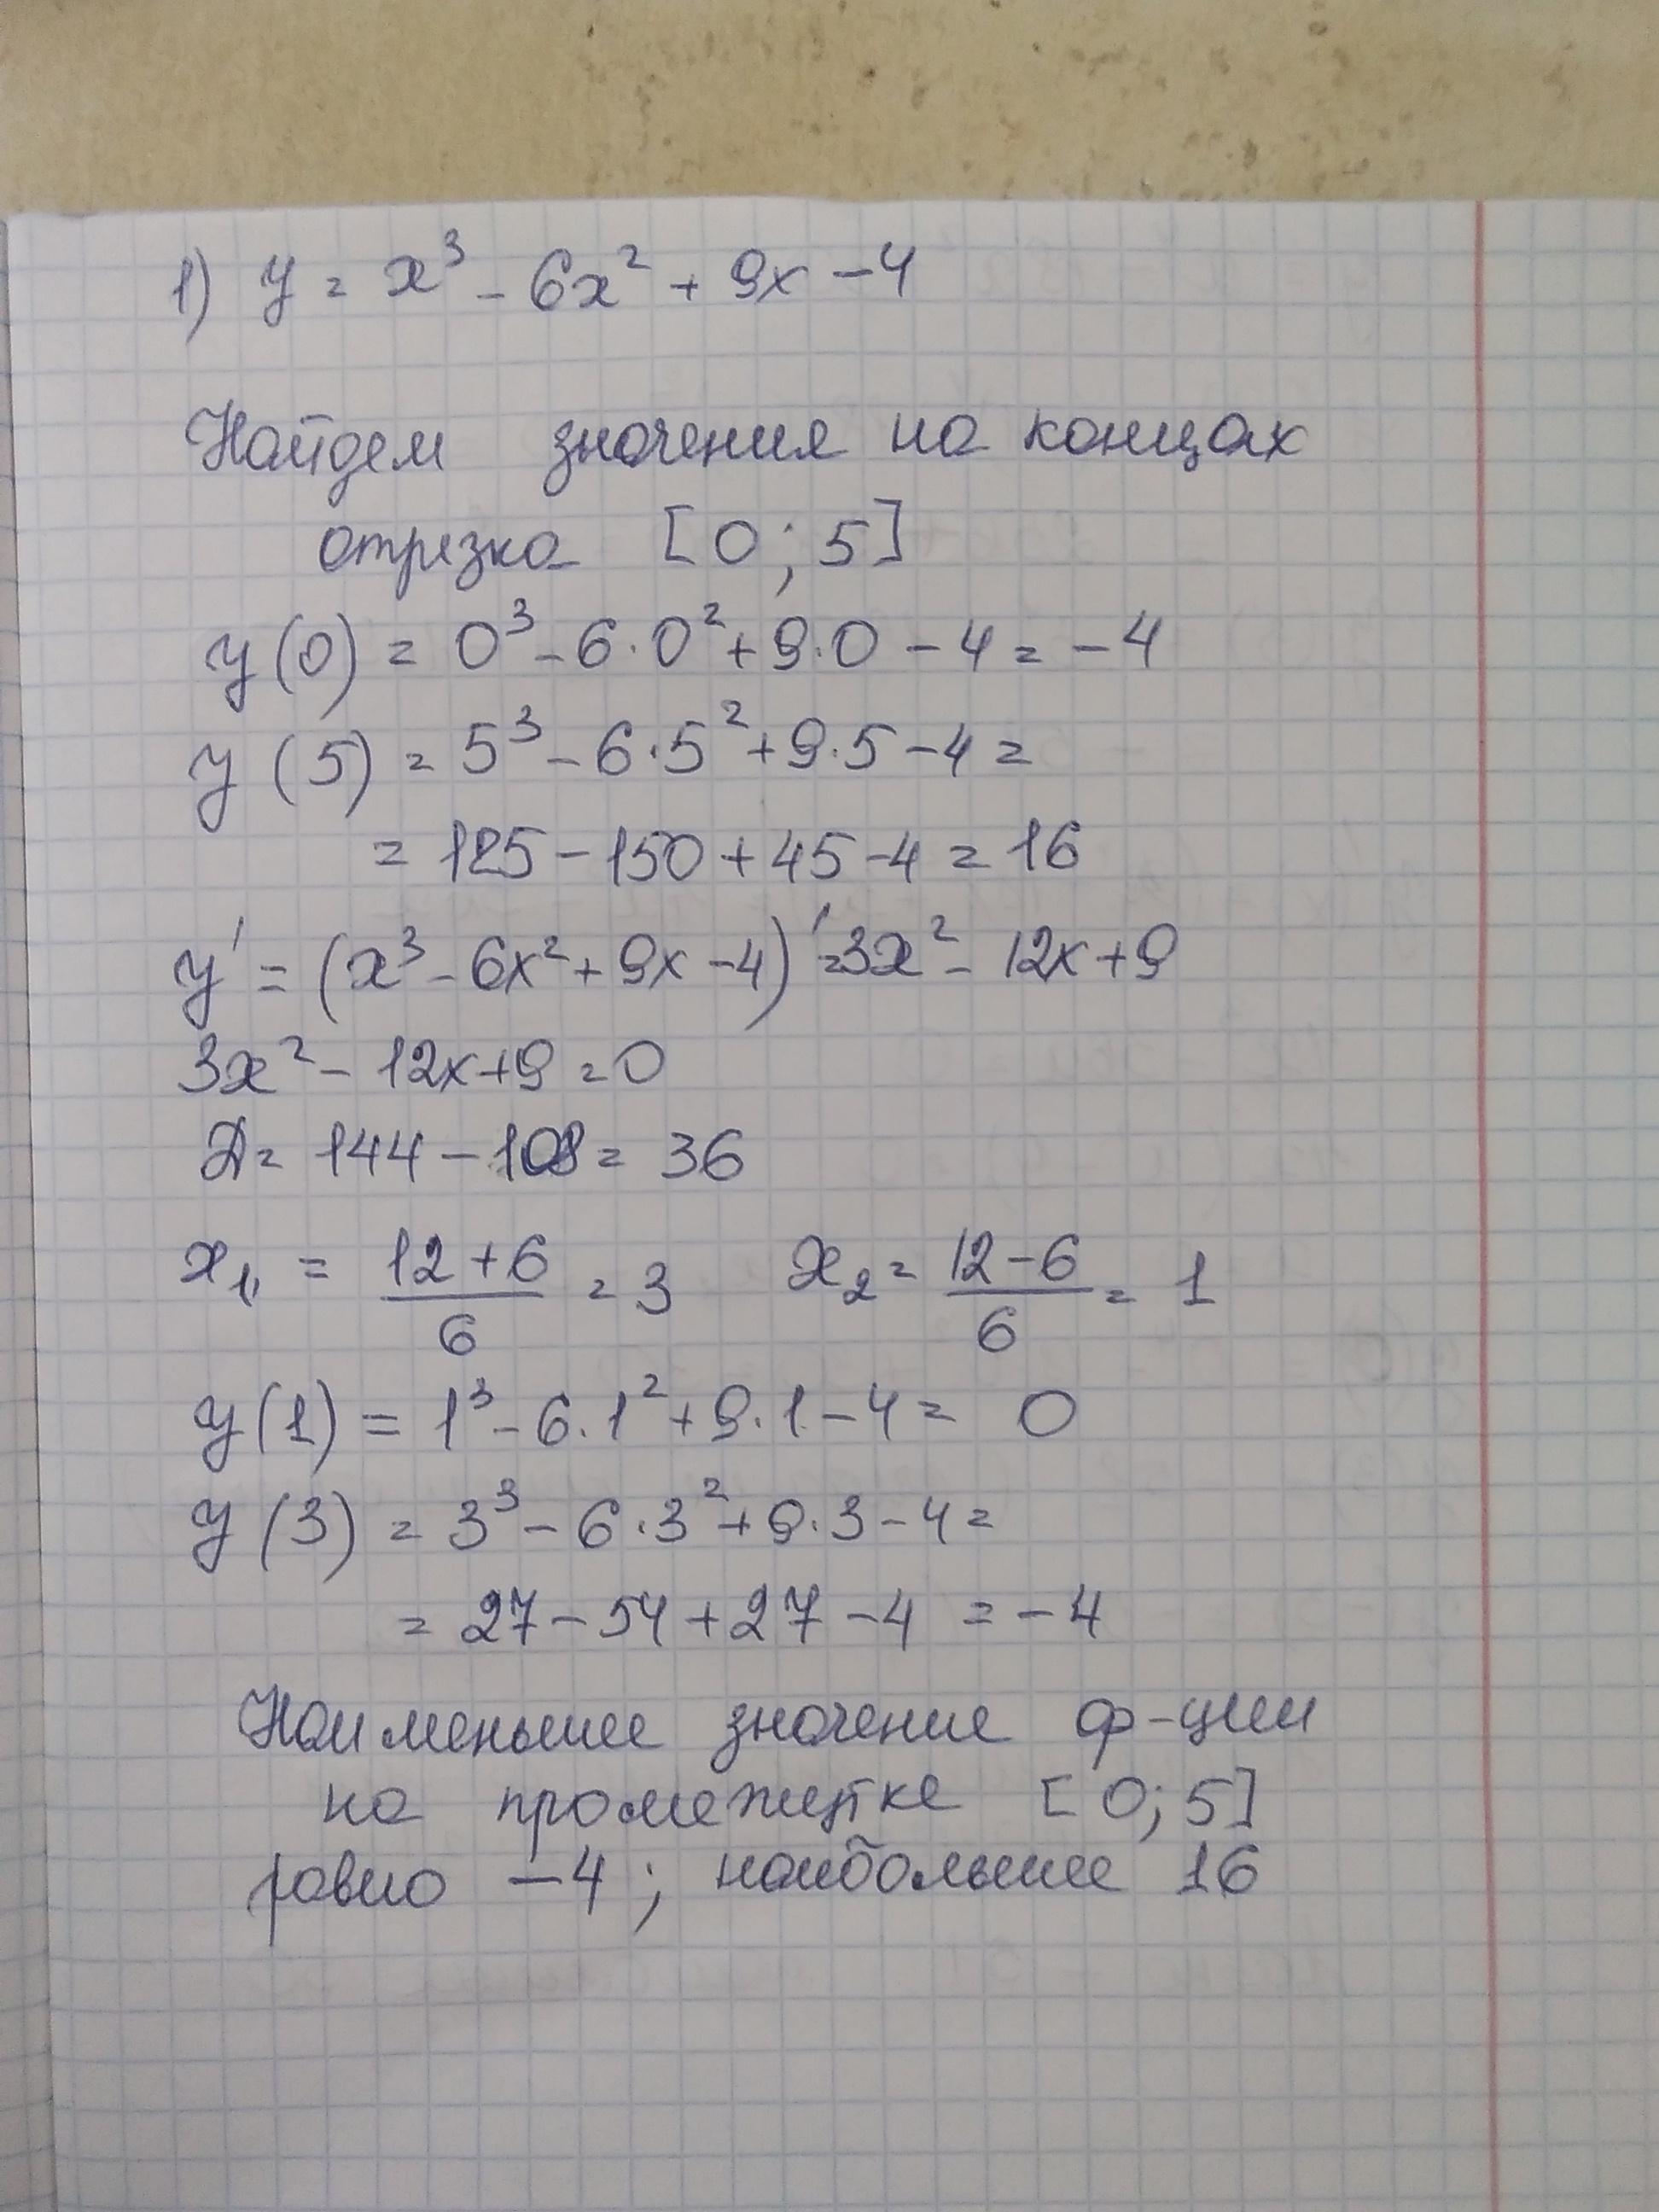 1) y = x³ - 6x² + 9x - 4
Найдем значения на концах
отрезка [0; 5]
y(0) = 0³ - 6·0² + 9·0 - 4 = -4
y(5) = 5³ - 6·5² + 9·5 - 4 =
= 125 - 150 + 45 - 4 = 16
y' = (x³ - 6x² + 9x - 4)' = 3x² - 12x + 9
3x² - 12x + 9 = 0
Д = 144 - 108 = 36
x₁ = (12 + 6)/6 = 3 x₂ = (12 - 6)/6 = 1
y(1) = 1³ - 6·1² + 9·1 - 4 = 0
y(3) = 3³ - 6·3² + 9·3 - 4 =
= 27 - 54 + 27 - 4 = -4
Наименьшее значение ф-ции
на промежутке [0; 5]
равно -4; наибольшее 16